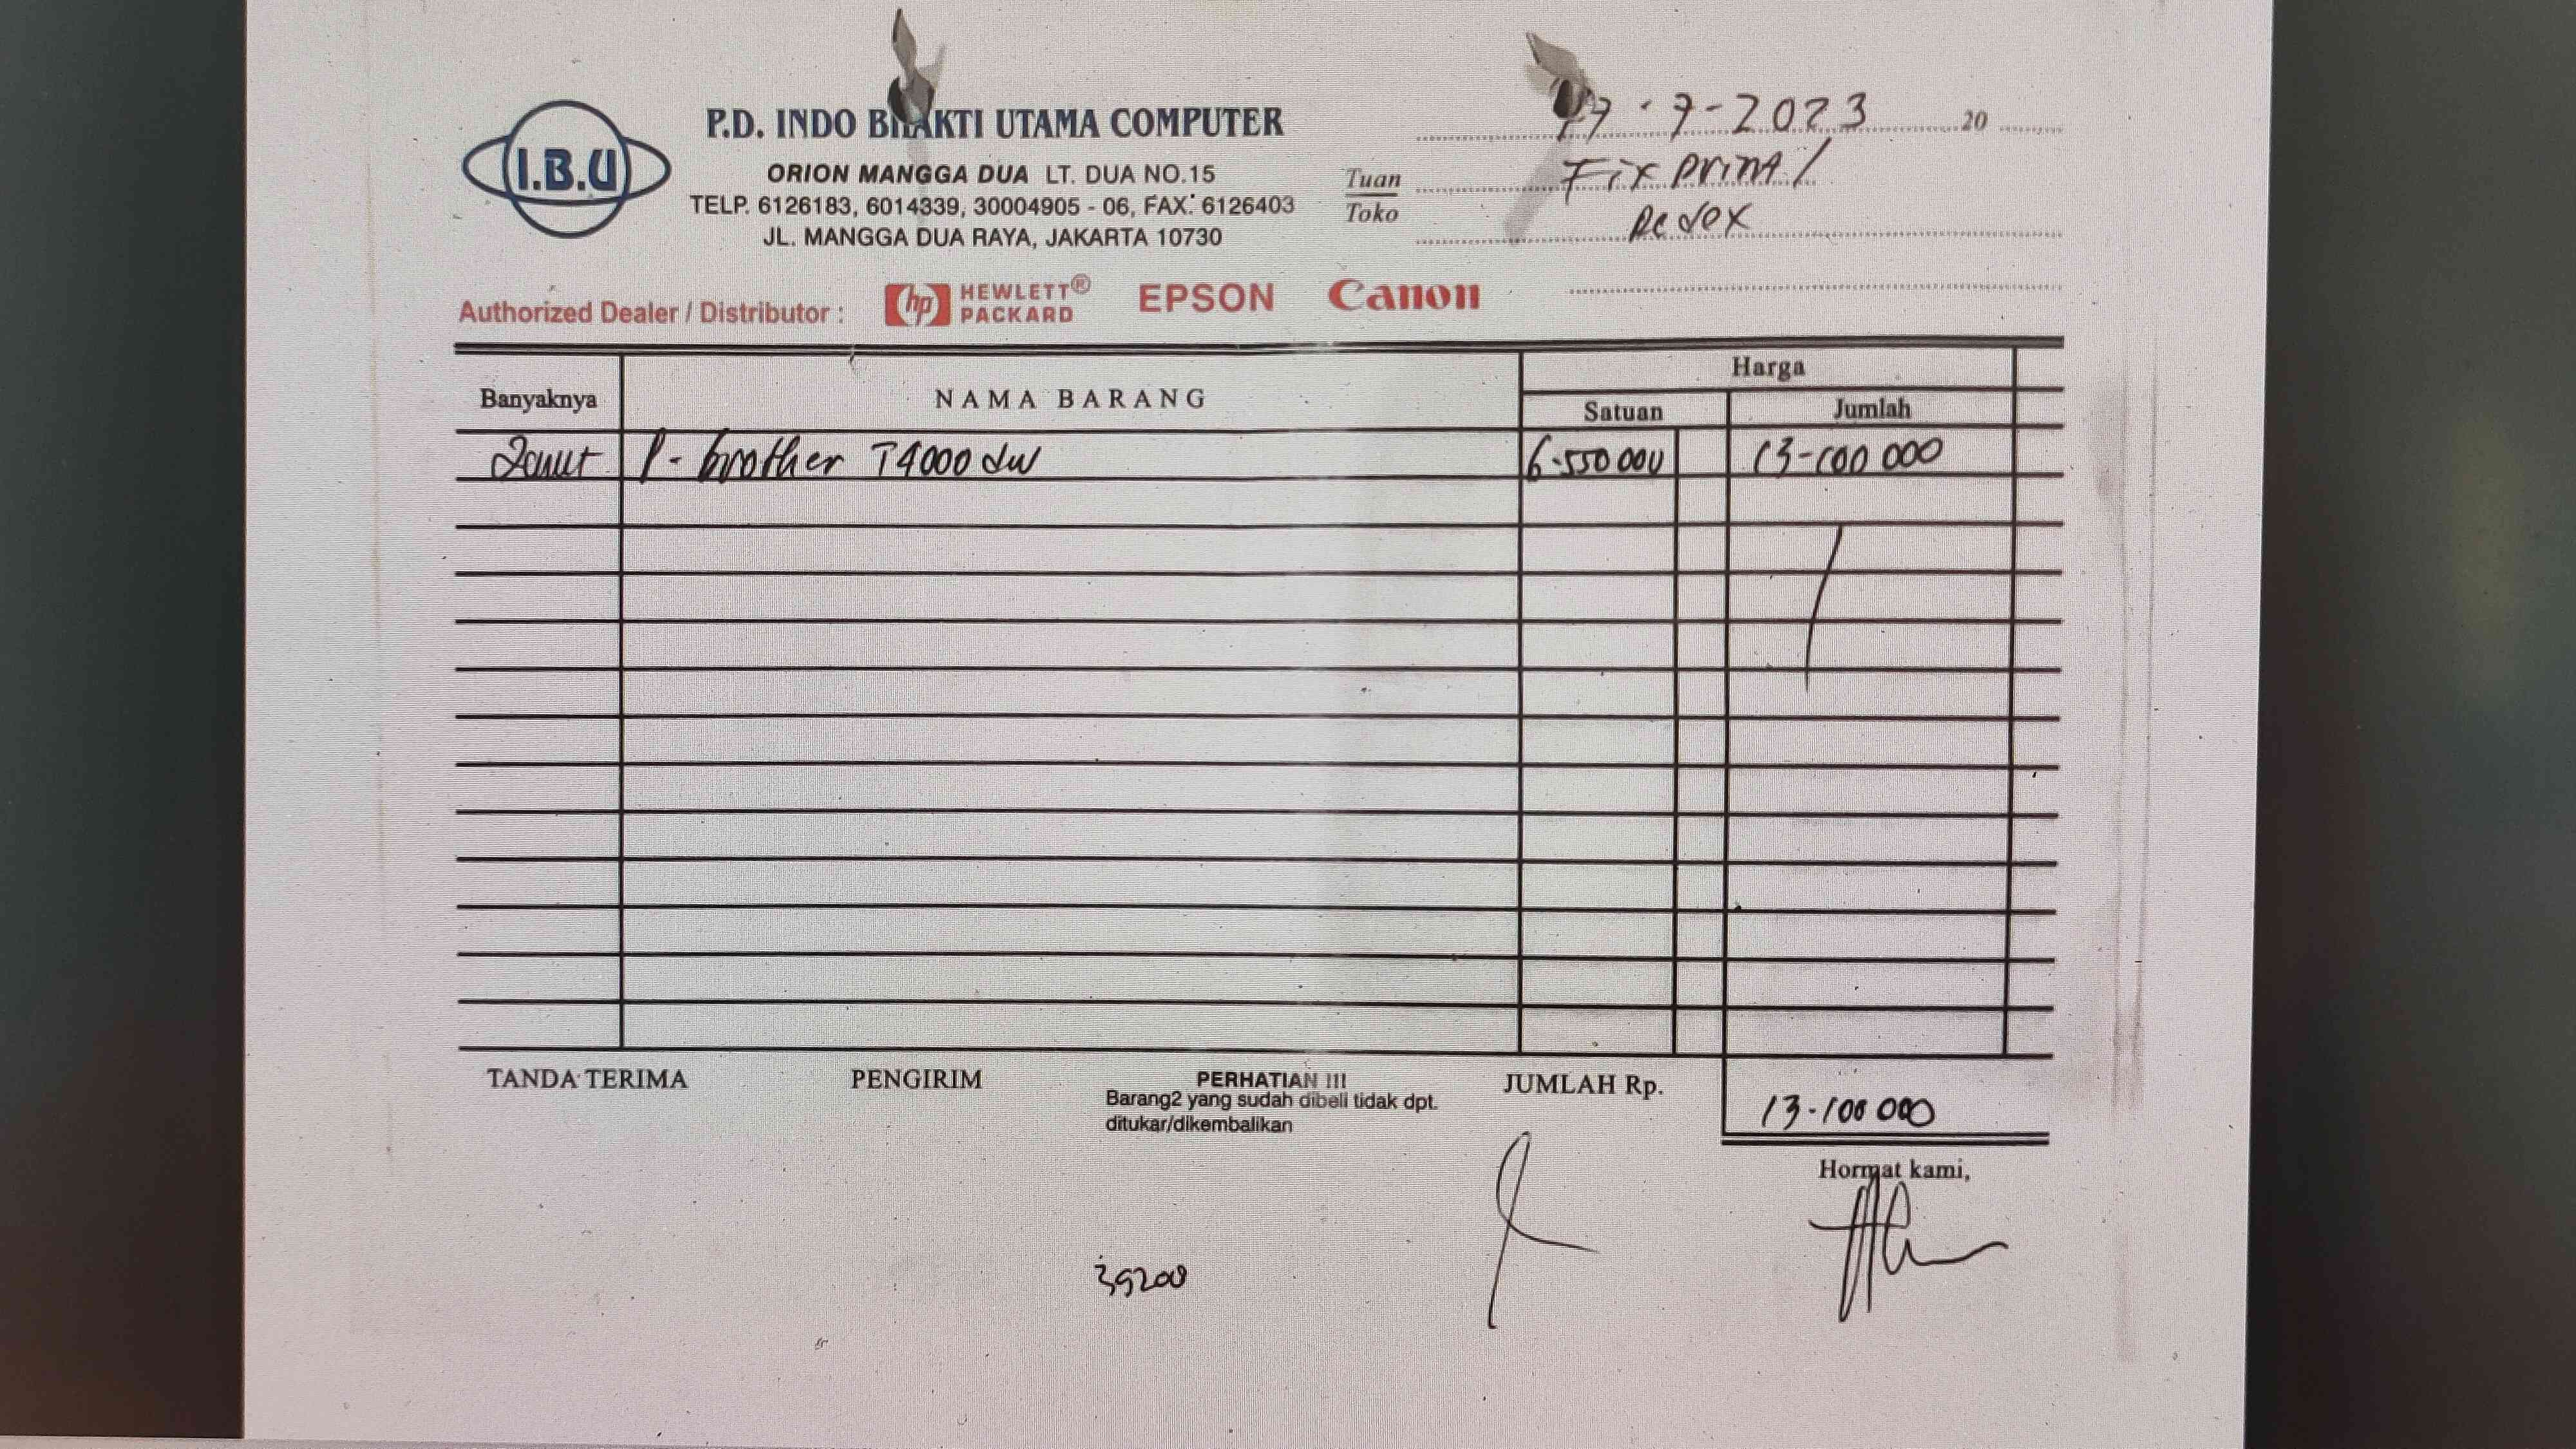 I.B.U
P.D. INDO BHAKTI UTAMA COMPUTER
ORION MANGGA DUA LT. DUA NO.15
TELP. 6126183, 6014339, 30004905 - 06, FAX: 6126403
JL. MANGGA DUA RAYA, JAKARTA 10730
7-7-2023 20
Tuan
Toko
Fix print/
Redox
Authorized Dealer / Distributor : hp HEWLETT® PACKARD EPSON Canon
Banyaknya NAMA BARANG Harga
Satuan Jumlah
2 P- brother T4000 dw 6-550 000 13-100 000
TANDA TERIMA PENGIRIM PERHATIAN !!! JUMLAH Rp. 13-100 000
Barang2 yang sudah dibeli tidak dpt.
ditukar/dikembalikan
Hormat kami,
39200